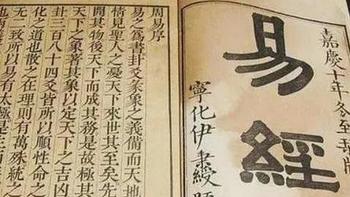 嘉慶十年冬至
易經
寧化伊秉綬題
周易序
易之為書卦爻彖象之義備而天地
情見聖人之憂天下來世其至矣先
開其物後天下而成其務是故極其
天下之象著其象以定天下之吉凶
卦三百八十四爻皆所以順性命之
化之道也散之在理則有萬殊統之
无二致所以易有太極是